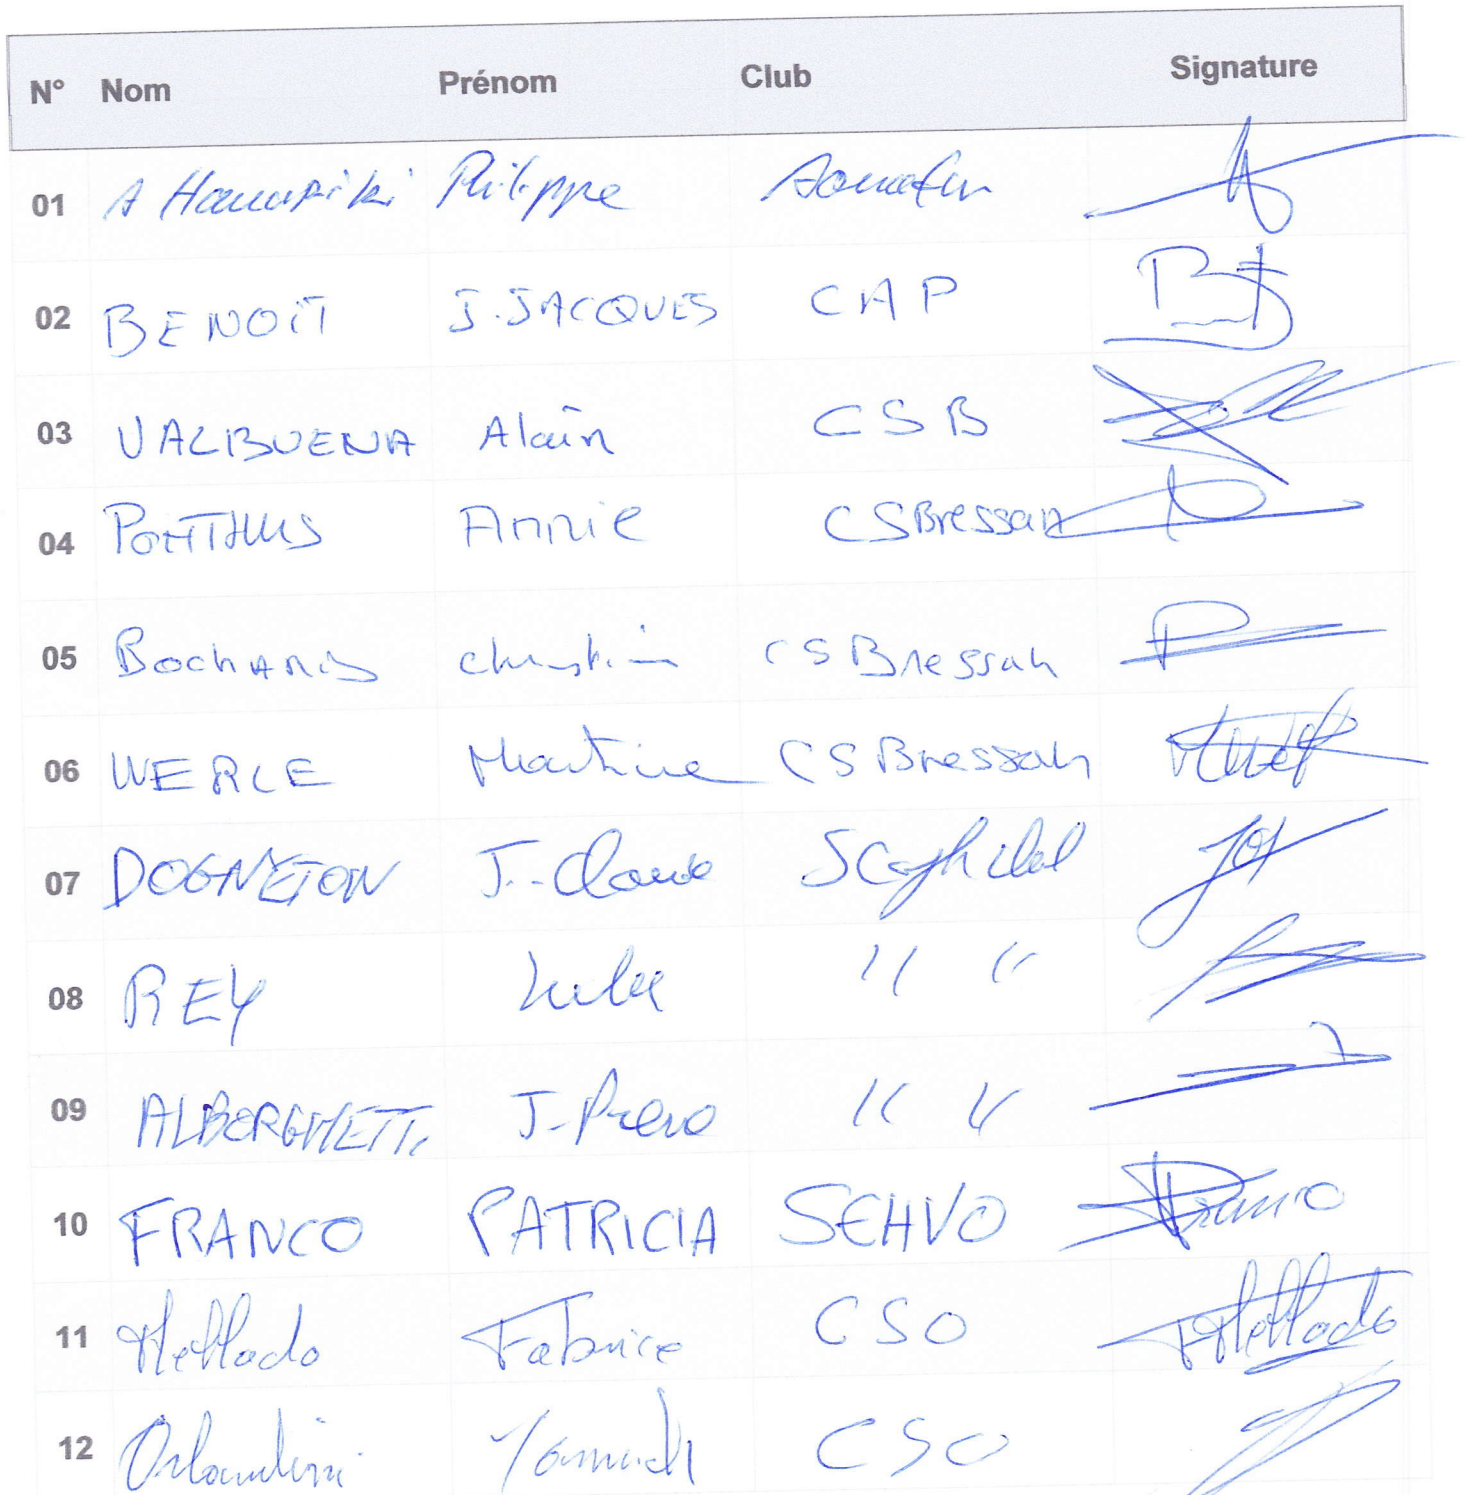 N° Nom Prénom Club Signature
01 Philippe
02 BENOIT J.JACQUES CAP
03 VALBUENA Alain CSB
04 PONTHUS Annie CSBressan
05 christine CS Bressan
06 WERLE Martine CS Bressan
07 DOGNETON J.-Claude
08 REY " "
09 ALBORGHETTI J-Piero " "
10 FRANCO PATRICIA SEHVO Franco
11 Mellado Fabrice CSO Mellado
12 Orlandini Yannick CSO